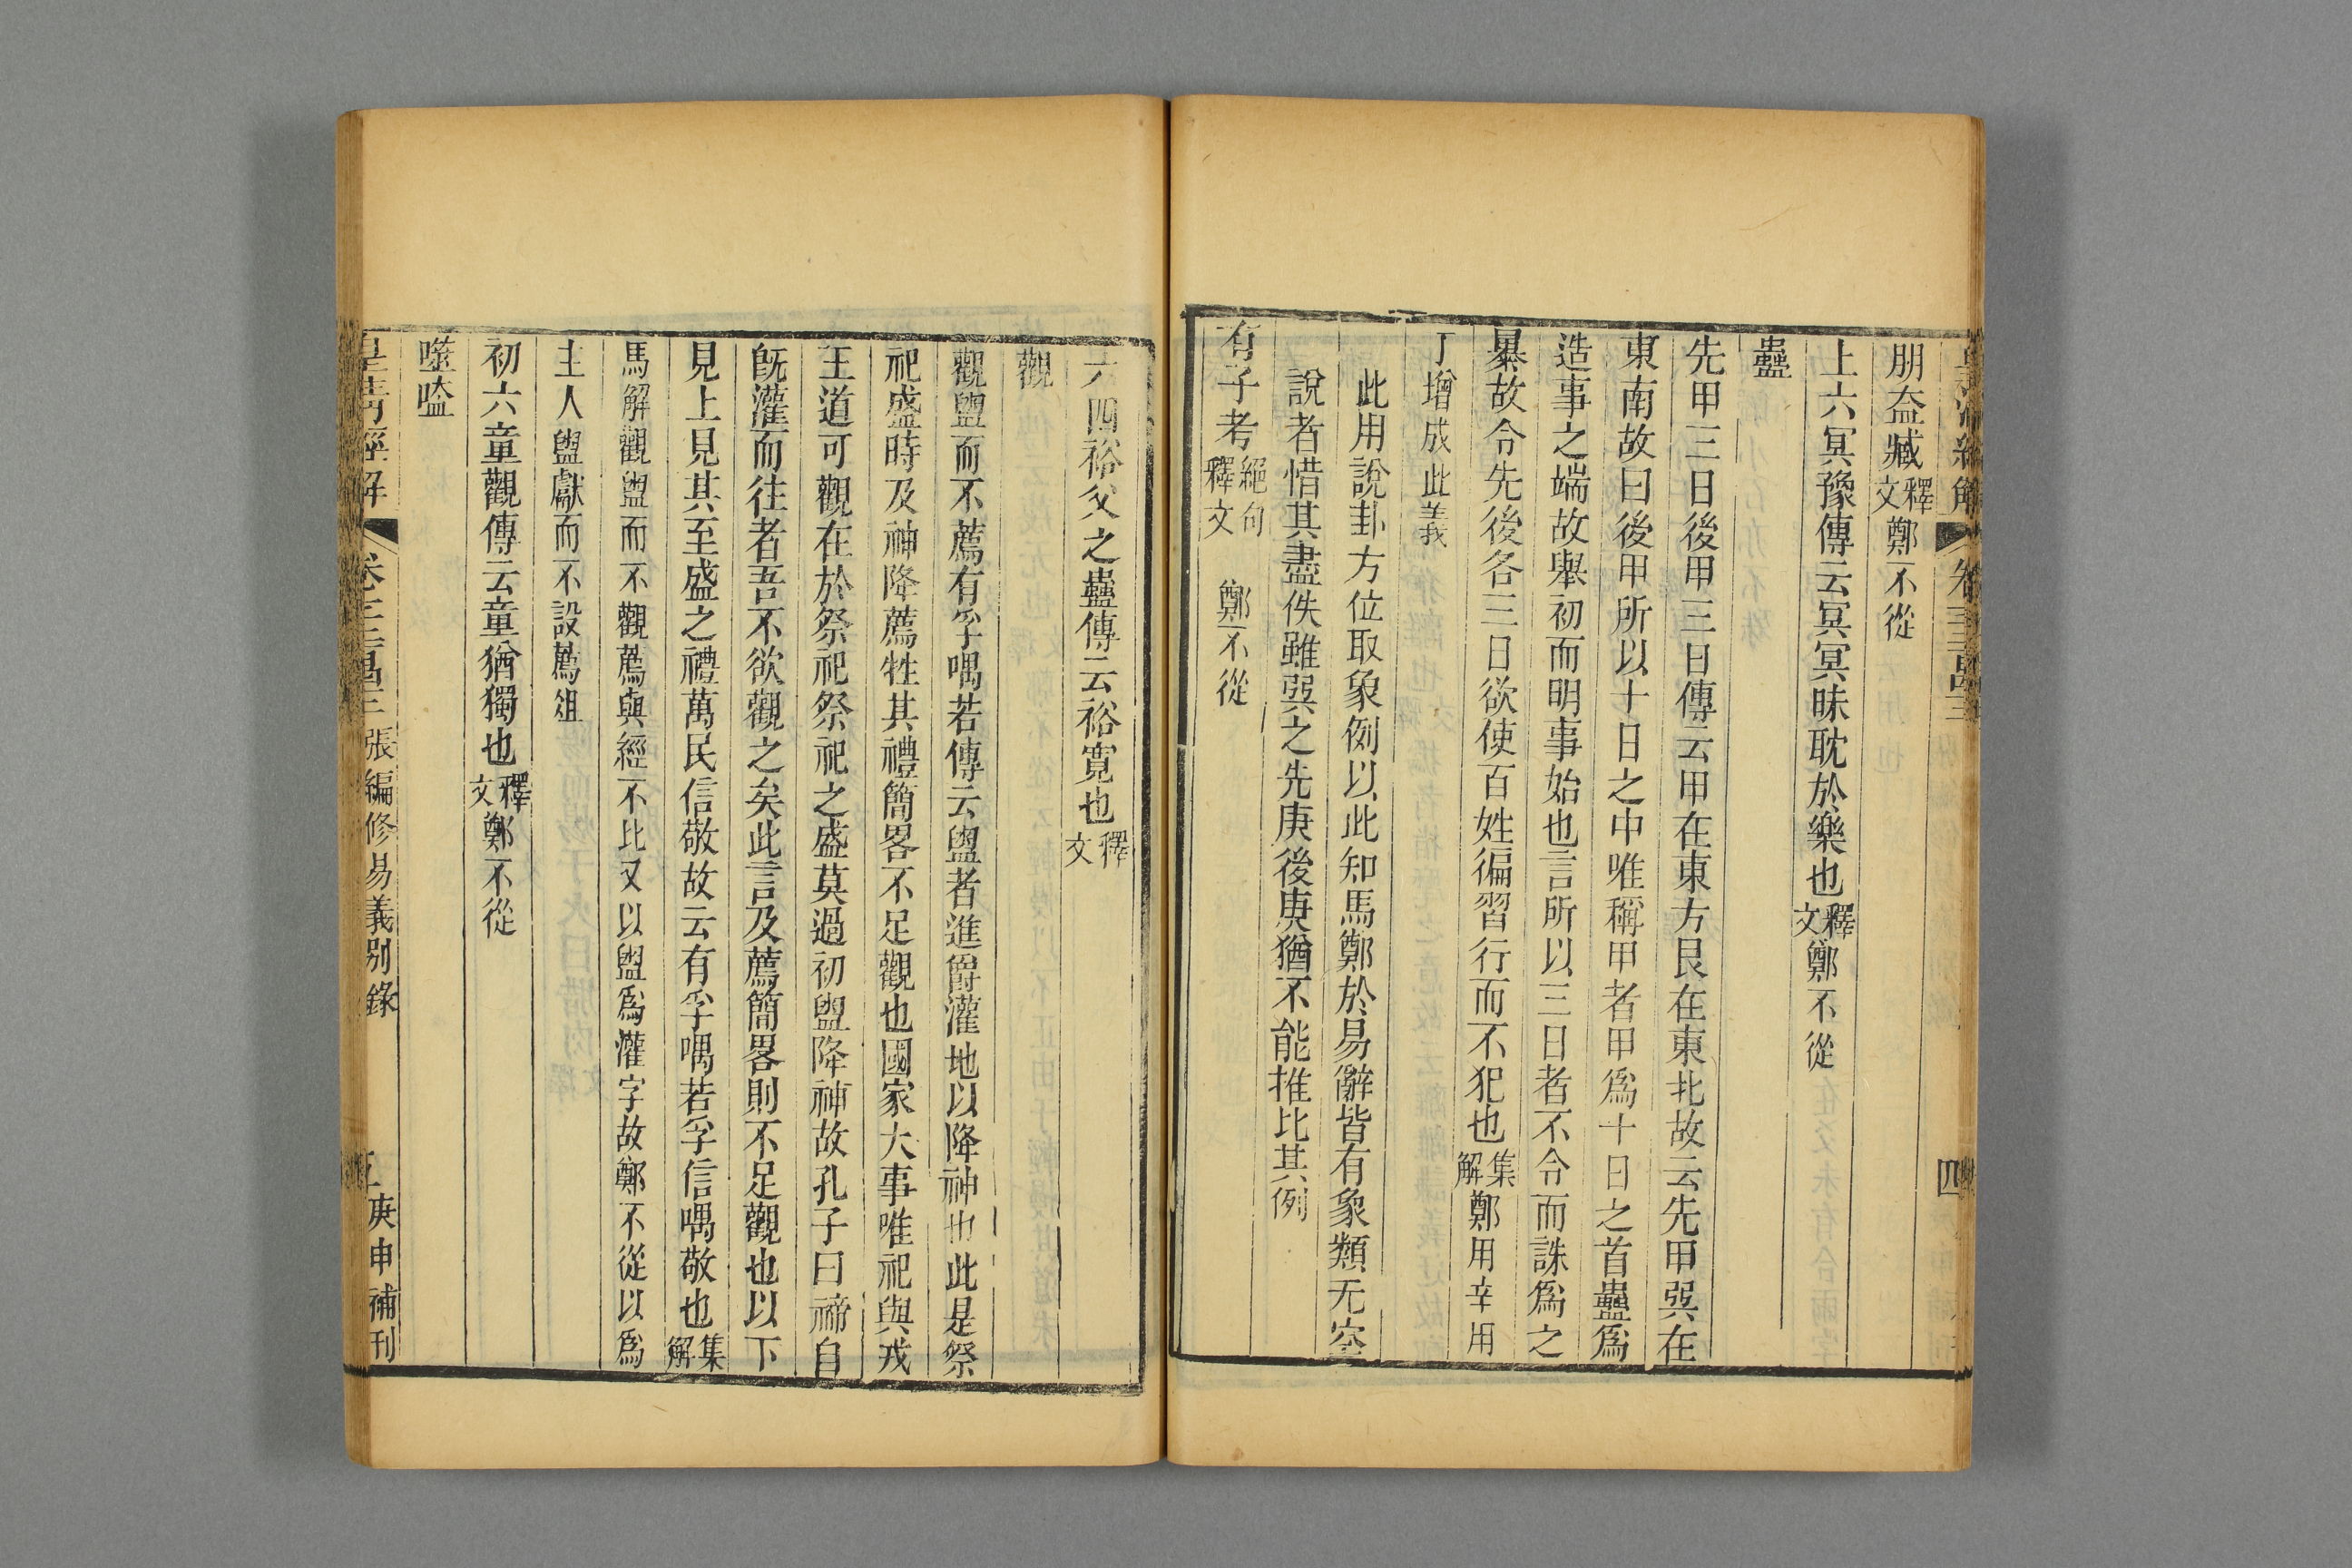 朋盍臧釋文鄭不從
上六冥豫傳云冥冥昧耽於樂也釋文鄭不從
蠱
先甲三日後甲三日傳云甲在東方艮在東北故云先甲巽在
東南故曰後甲所以十日之中唯稱甲者甲爲十日之首蠱爲
造事之端故舉初而明事始也言所以三日者不令而誅爲之
暴故令先後各三日欲使百姓徧習行而不犯也集解鄭用辛用
丁增成此義
此用說卦方位取象例以此知馬鄭於易辭皆有象類无空
說者惜其盡佚雖巽之先庚後庚猶不能推比其例
有子考絕句釋文 鄭不從
六四裕父之蠱傳云裕寬也釋文
觀
觀盥而不薦有孚喁若傳云盥者進爵灌地以降神也此是祭
祀盛時及神降薦牲其禮簡畧不足觀也國家大事唯祀與戎
王道可觀在於祭祀祭祀之盛莫過初盥降神故孔子曰禘自
旣灌而往者吾不欲觀之矣此言及薦簡畧則不足觀也以下
見上見其至盛之禮萬民信敬故云有孚喁若孚信喁敬也集解
馬解觀盥而不觀薦與經不比又以盥爲灌字故鄭不從以爲
主人盥獻而不設薦俎
初六童觀傳云童猶獨也釋文鄭不從
噬嗑
皇淸經解 張編修易義別錄 五 庚申補刊